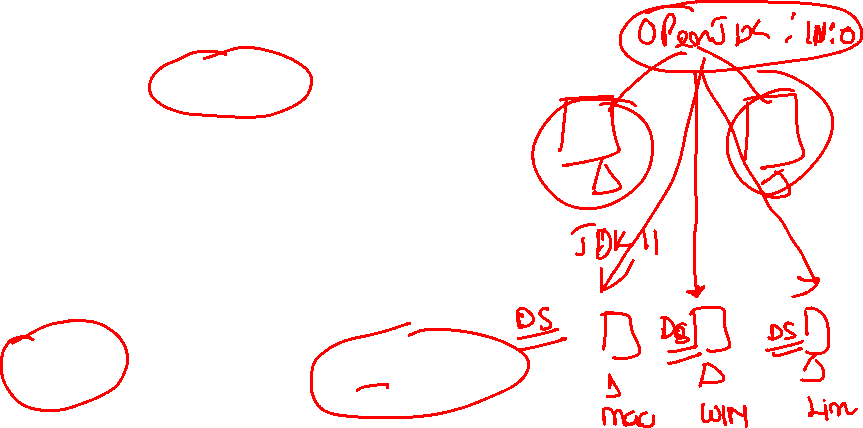 OPenJDK : 11.0
JDK 11
DS DS DS
mac WIN Lin